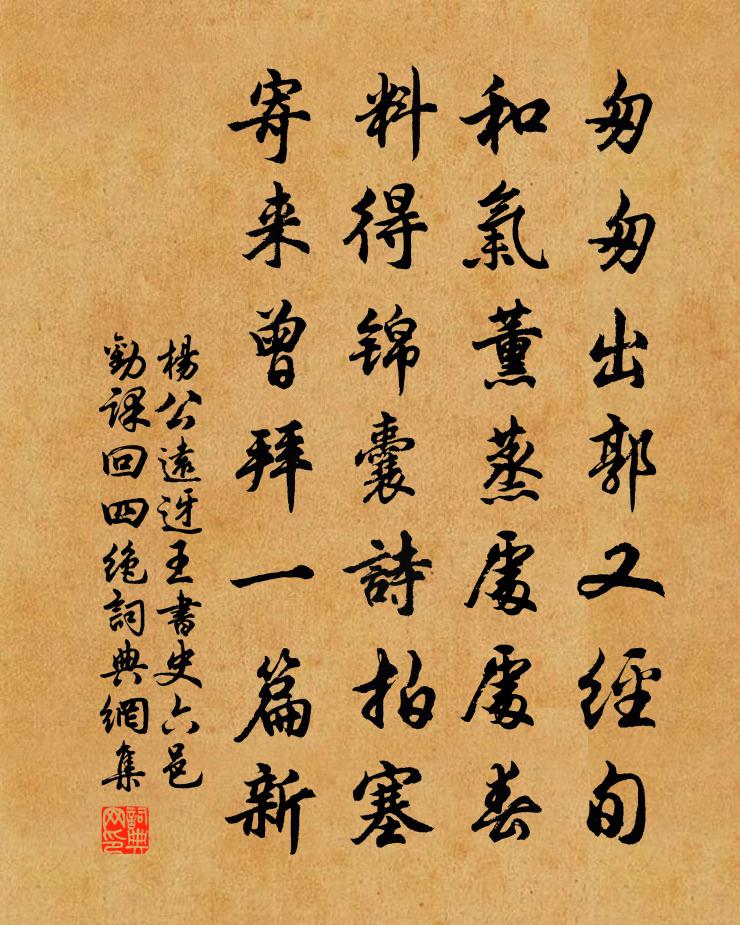 匆匆出郭又經旬
和氣薰蒸處處春
料得錦囊詩拍塞
寄来曾拜一篇新
楊公遠迓王書史六邑
勸課回四絶詞典網集
詞典
网印